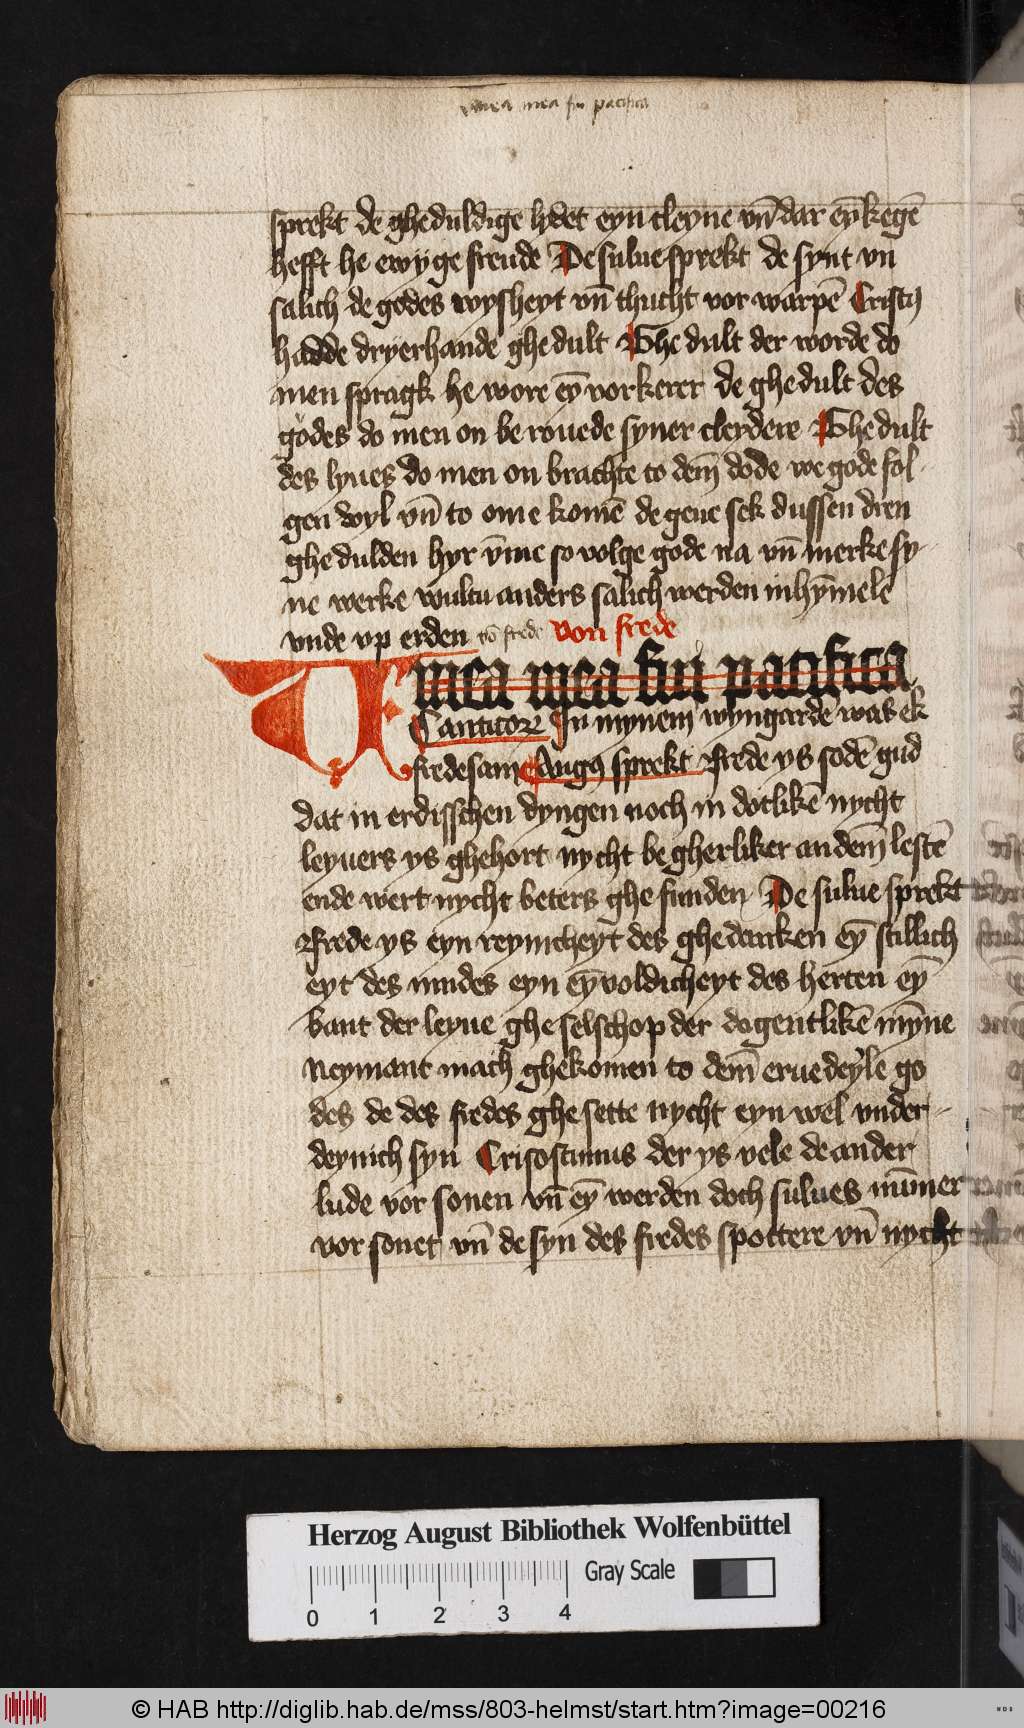 vinea mea fui pacifica
sprekt de gheduldige lydet eyn cleyne vn̄ dar eȳ kegē
hefft he ewyge freude De sulue sprekt de synt vn
salich de godes wysheyt vn̄ thucht vor warpē Cristꝰ
hadde dryerhande ghedult Ghedult der worde do
men spragk he wore eȳ vorkerer de ghedult des
godes do men on berouede syner cleydere Ghedult
des lyues do men on brachte to dem̄ dode we gode fol
gen wyl vn̄ to ome komē de geue sek dussen dren
ghedulden hyr v̄me so volge gode na vn̄ merke sy
ne werke wultu anders salich werden in hȳmele
vnde vp erden vō frede von frede
Vinea mea fui pacifica
Canticoꝝ In mynem wyngardē was ek
fredesam Augꝰ sprekt Frede ys sodē gud
dat in erdisschen dyngen noch in dotlikē nycht
leyuers ys ghehort nycht begherliker an dem̄ lestē
ende wert nycht beters ghefunden De sulue sprekt
Frede ys eyn reynicheyt des ghedanken eȳ stillich
eyt des mudes eyn eȳvoldicheyt des herten eȳ
bant der leyue gheselschop der dogentlikē mȳne
Neymant mach ghekomen to dem̄ eruedeyle go
des de des fredes ghesette nycht eyn wel vnder
deynich syn Crisostimus der ys vele de ander
lude vor sonen vn̄ eȳ werden doch sulues nūmer
vor sonet vn̄ de syn des fredes spottere vn̄ nycht
Herzog August Bibliothek Wolfenbüttel
Gray Scale
0 1 2 3 4
© HAB http://diglib.hab.de/mss/803-helmst/start.htm?image=00216